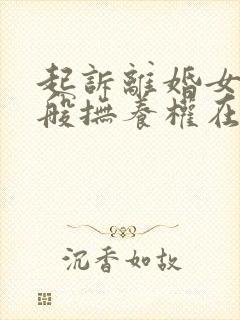 起訴離婚女
般撫養權在
沉香如故